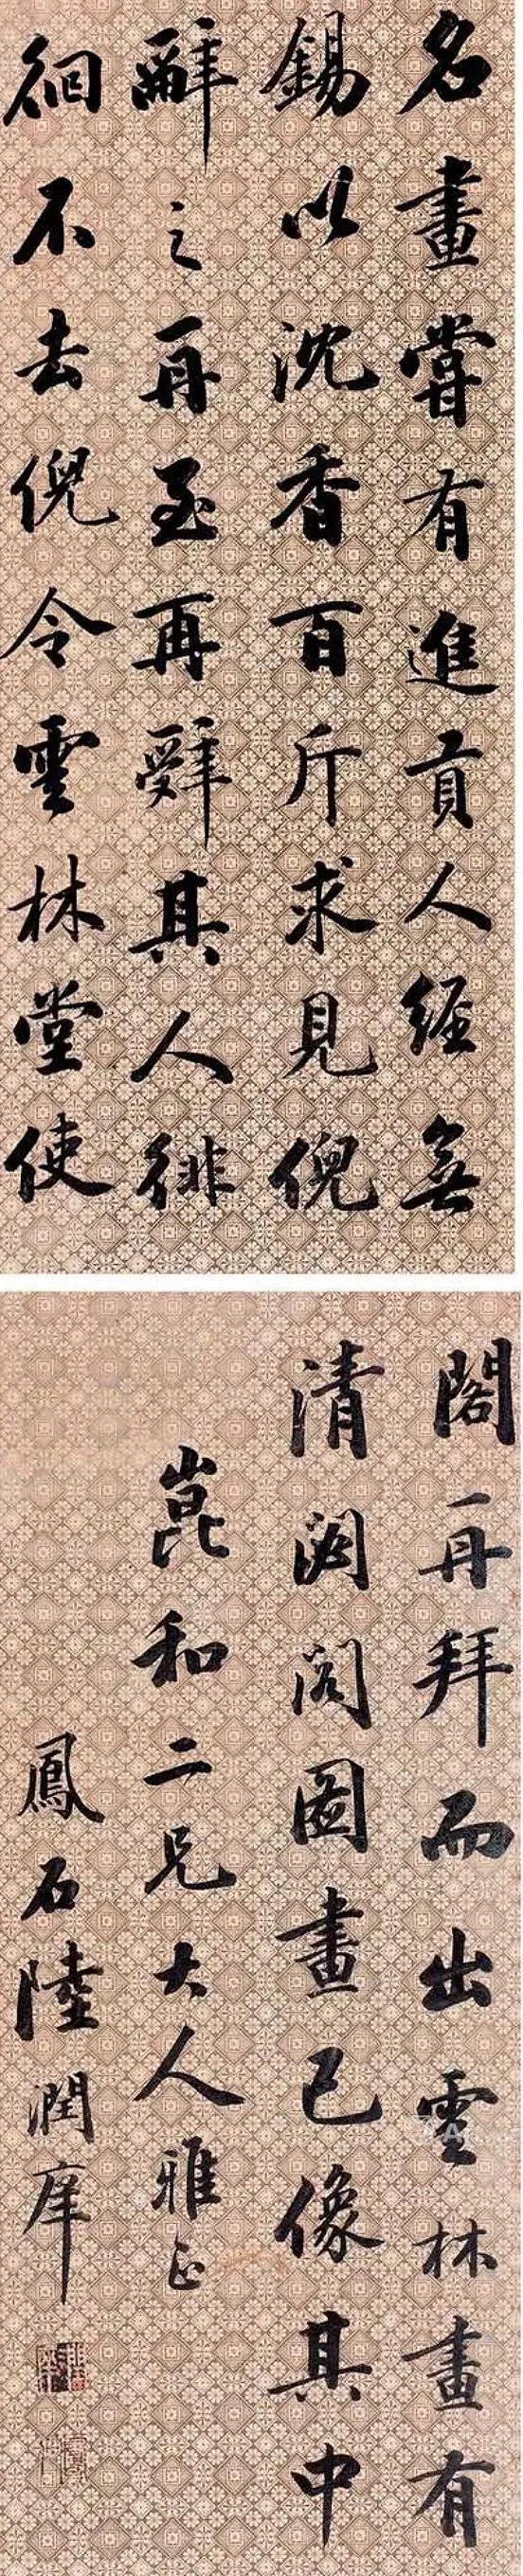 名畫嘗有進貢人經無
錫以沈香百斤求見倪
辭之再至再辭其人徘
徊不去倪令雲林堂使
閣一再拜而出雲林畫有
清閟閣圖畫已像其中
崑和二兄大人雅正
鳳石陸潤庠